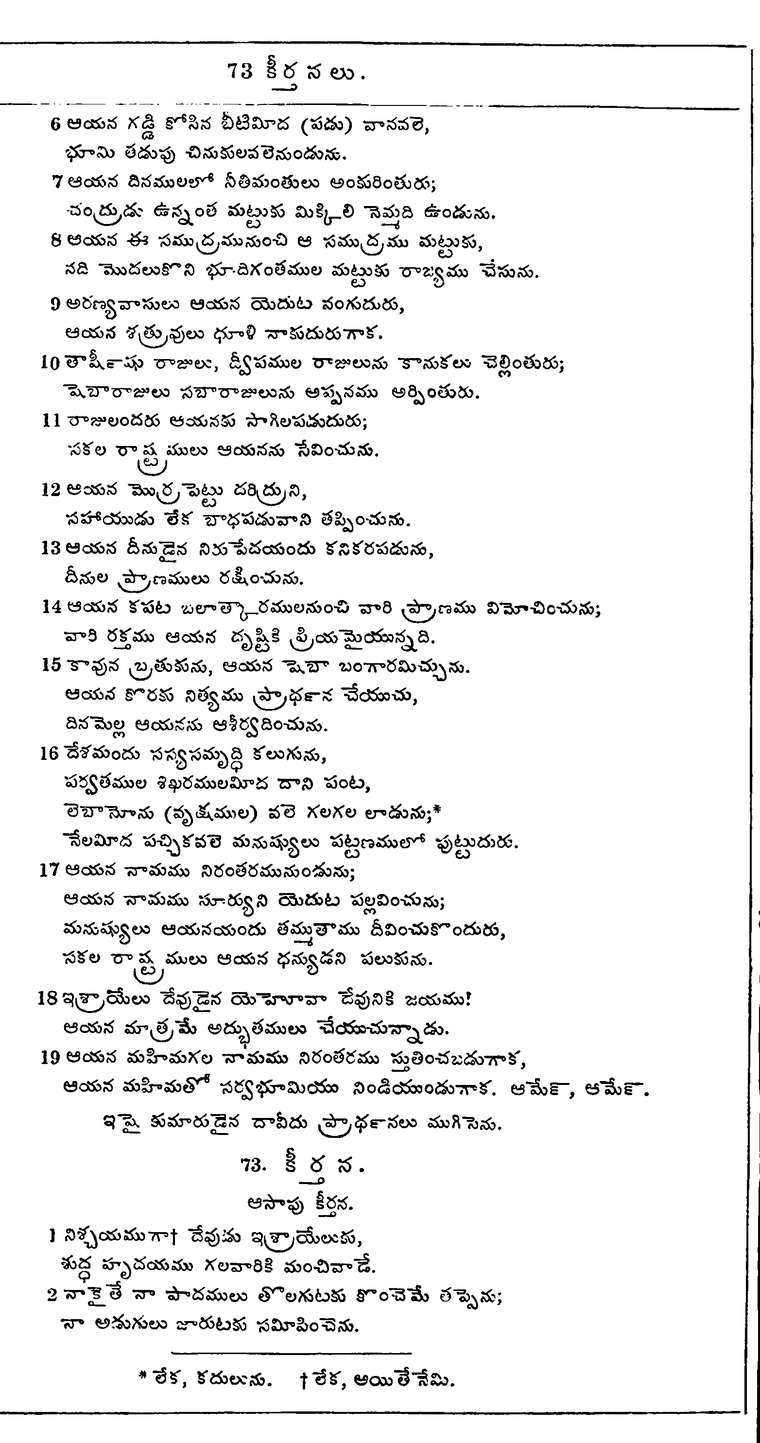 73 కీర్తనలు.
6 ఆయన గడ్డి కోసిన బీటిమీద (పడు) వానవలె,
భూమి తడుపు చినుకులవలెనుండును.
7 ఆయన దినములలో నీతిమంతులు అంకురింతురు;
చంద్రుడు ఉన్నంత మట్టుకు మిక్కిలి నెమ్మది ఉండును.
8 ఆయన ఈ సముద్రమునుంచి ఆ సముద్రము మట్టుకు,
నది మొదలుకొని భూదిగంతముల మట్టుకు రాజ్యము చేసును.
9 అరణ్యవాసులు ఆయన యెదుట వంగుదురు,
ఆయన శత్రువులు ధూళి నాకుదురుగాక.
10 తార్షీషు రాజులు, ద్వీపముల రాజులును కానుకలు చెల్లింతురు;
షెబారాజులు సబారాజులును అప్పనము అర్పింతురు.
11 రాజులందరు ఆయనకు సాగిలపడుదురు;
సకల రాష్ట్రములు ఆయనను సేవించును.
12 ఆయన మొర్రపెట్టు దరిద్రుని,
సహాయుడు లేక బాధపడువాని తప్పించును.
13 ఆయన దీనుడైన నిరుపేదయందు కనికరపడును,
దీనుల ప్రాణములు రక్షించును.
14 ఆయన కపట బలాత్కారములనుంచి వారి ప్రాణము విమోచించును;
వారి రక్తము ఆయన దృష్టికి ప్రియమైయున్నది.
15 కావున బ్రతుకును, ఆయన షెబా బంగారమిచ్చును.
ఆయన కొరకు నిత్యము ప్రార్థన చేయుచు,
దినమెల్ల ఆయనను ఆశీర్వదించును.
16 దేశమందు సస్యసమృద్ధి కలుగును,
పర్వతముల శిఖరములమీద దాని పంట,
లెబానోను (వృక్షముల) వలె గలగల లాడును;*
నేలమీద పచ్చికవలె మనుష్యులు పట్టణములో పుట్టుదురు.
17 ఆయన నామము నిరంతరమునుండును;
ఆయన నామము సూర్యుని యెదుట పల్లవించును;
మనుష్యులు ఆయనయందు తమ్ముతాము దీవించుకొందురు,
సకల రాష్ట్రములు ఆయన ధన్యుడని పలుకును.
18 ఇశ్రాయేలు దేవుడైన యెహోవా దేవునికి జయము!
ఆయన మాత్రమే అద్భుతములు చేయుచున్నాడు.
19 ఆయన మహిమగల నామము నిరంతరము స్తుతించబడుగాక,
ఆయన మహిమతో సర్వభూమియు నిండియుండుగాక. ఆమేర్, ఆమేర్.
ఇషై కుమారుడైన దావీదు ప్రార్థనలు ముగిసెను.
73. కీర్తన.
ఆసాపు కీర్తన.
1 నిశ్చయముగా† దేవుడు ఇశ్రాయేలుకు,
శుద్ధ హృదయము గలవారికి మంచివాడే.
2 నాకైతే నా పాదములు తొలగుటకు కొంచెమే తప్పెను;
నా అడుగులు జారుటకు సమీపించెను.
* లేక, కదులును. † లేక, అయితేనేమి.